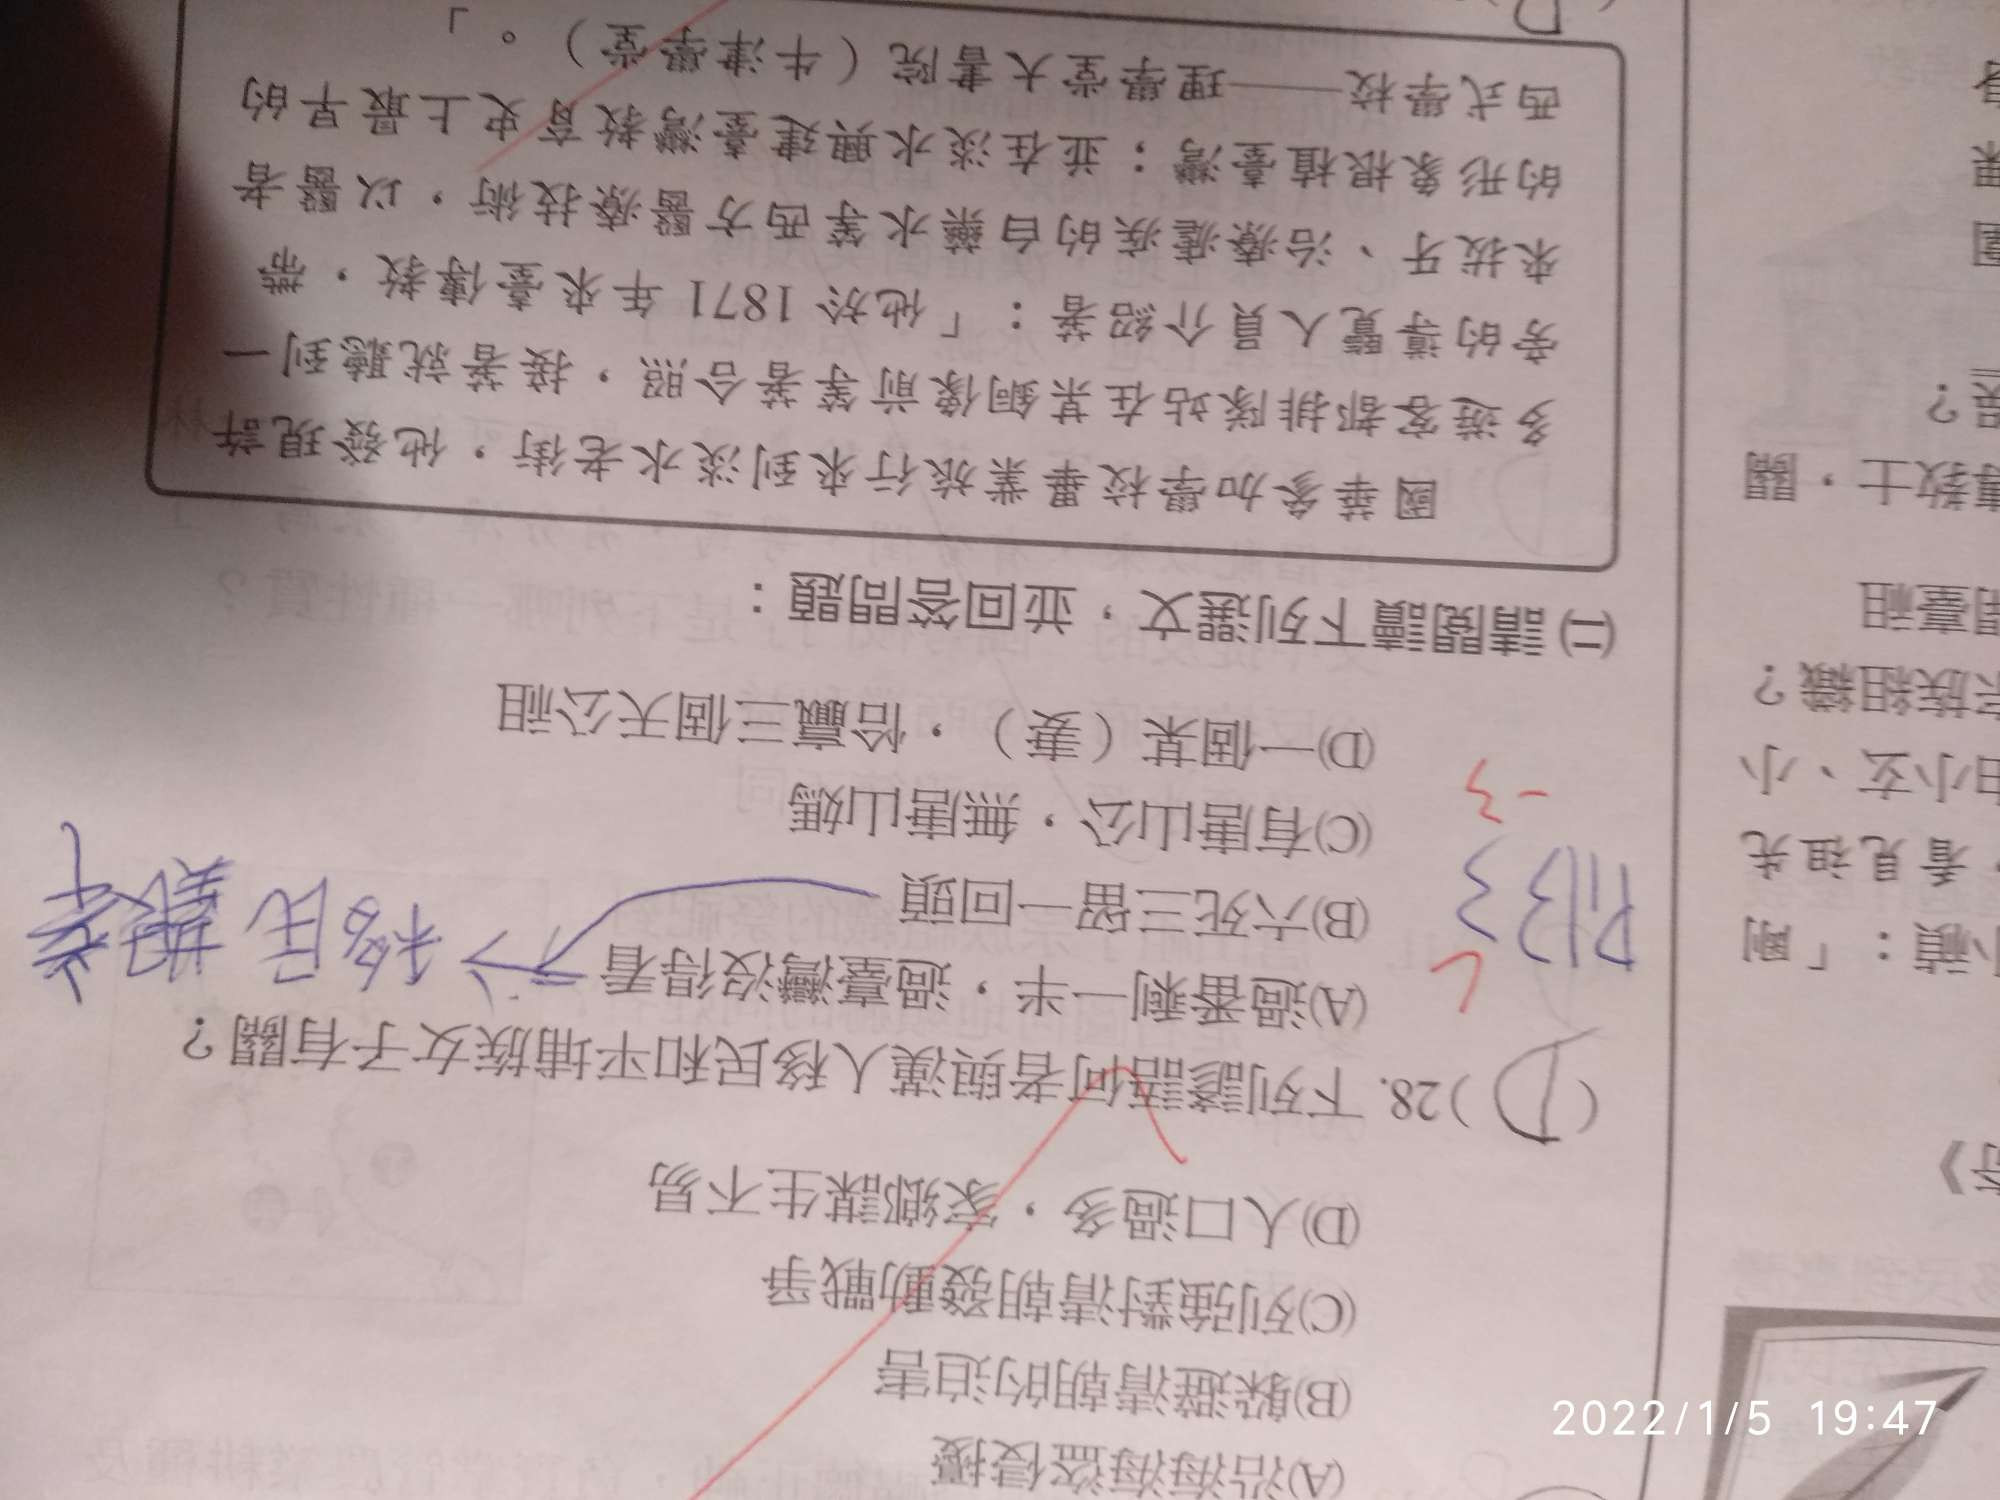 (A)沿海海盜侵擾
(B)躲避清朝的迫害
(C)列強對清朝發動戰爭
(D)人口過多，家鄉謀生不易
(D)28. 下列諺語何者與漢人移民和平埔族女子有關？
(A)過番剩一半，過臺灣沒得看
(B)六死三留一回頭
(C)有唐山公，無唐山媽
(D)一個某（妻），恰贏三個天公祖
移民艱辛
P113
-3
㈡請閱讀下列選文，並回答問題：
國華參加學校畢業旅行來到淡水老街，他發現許
多遊客都排隊站在某銅像前等著合照，接著就聽到一
旁的導覽人員介紹著：「他於 1871 年來臺傳教，帶
來拔牙、治療瘧疾的白藥水等西方醫療技術，以醫者
的形象根植臺灣；並在淡水興建臺灣教育史上最早的
西式學校——理學堂大書院（牛津學堂）。」
D
，看見祖先
由小玄、小
族組織？
開臺祖
教士，關
2022/1/5 19:47